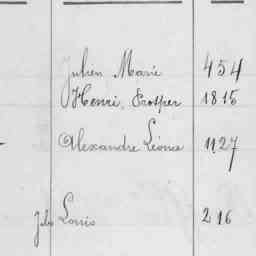 Julien Marie 454
Henri, Prosper 1815
Alexandre Léonce 1127
Jules Louis 216